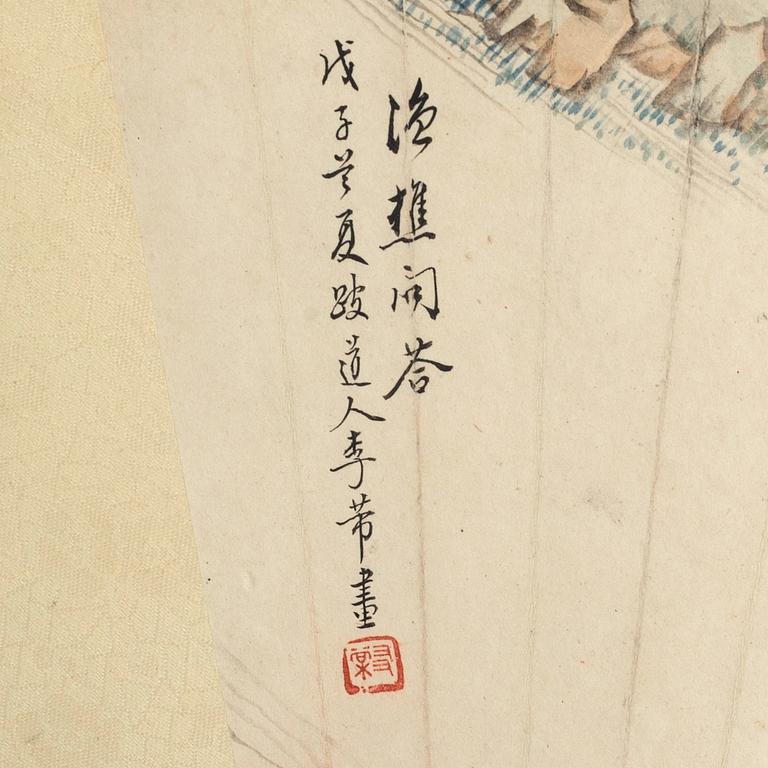 漁樵問荅
戊子夏跛道人李芾畫